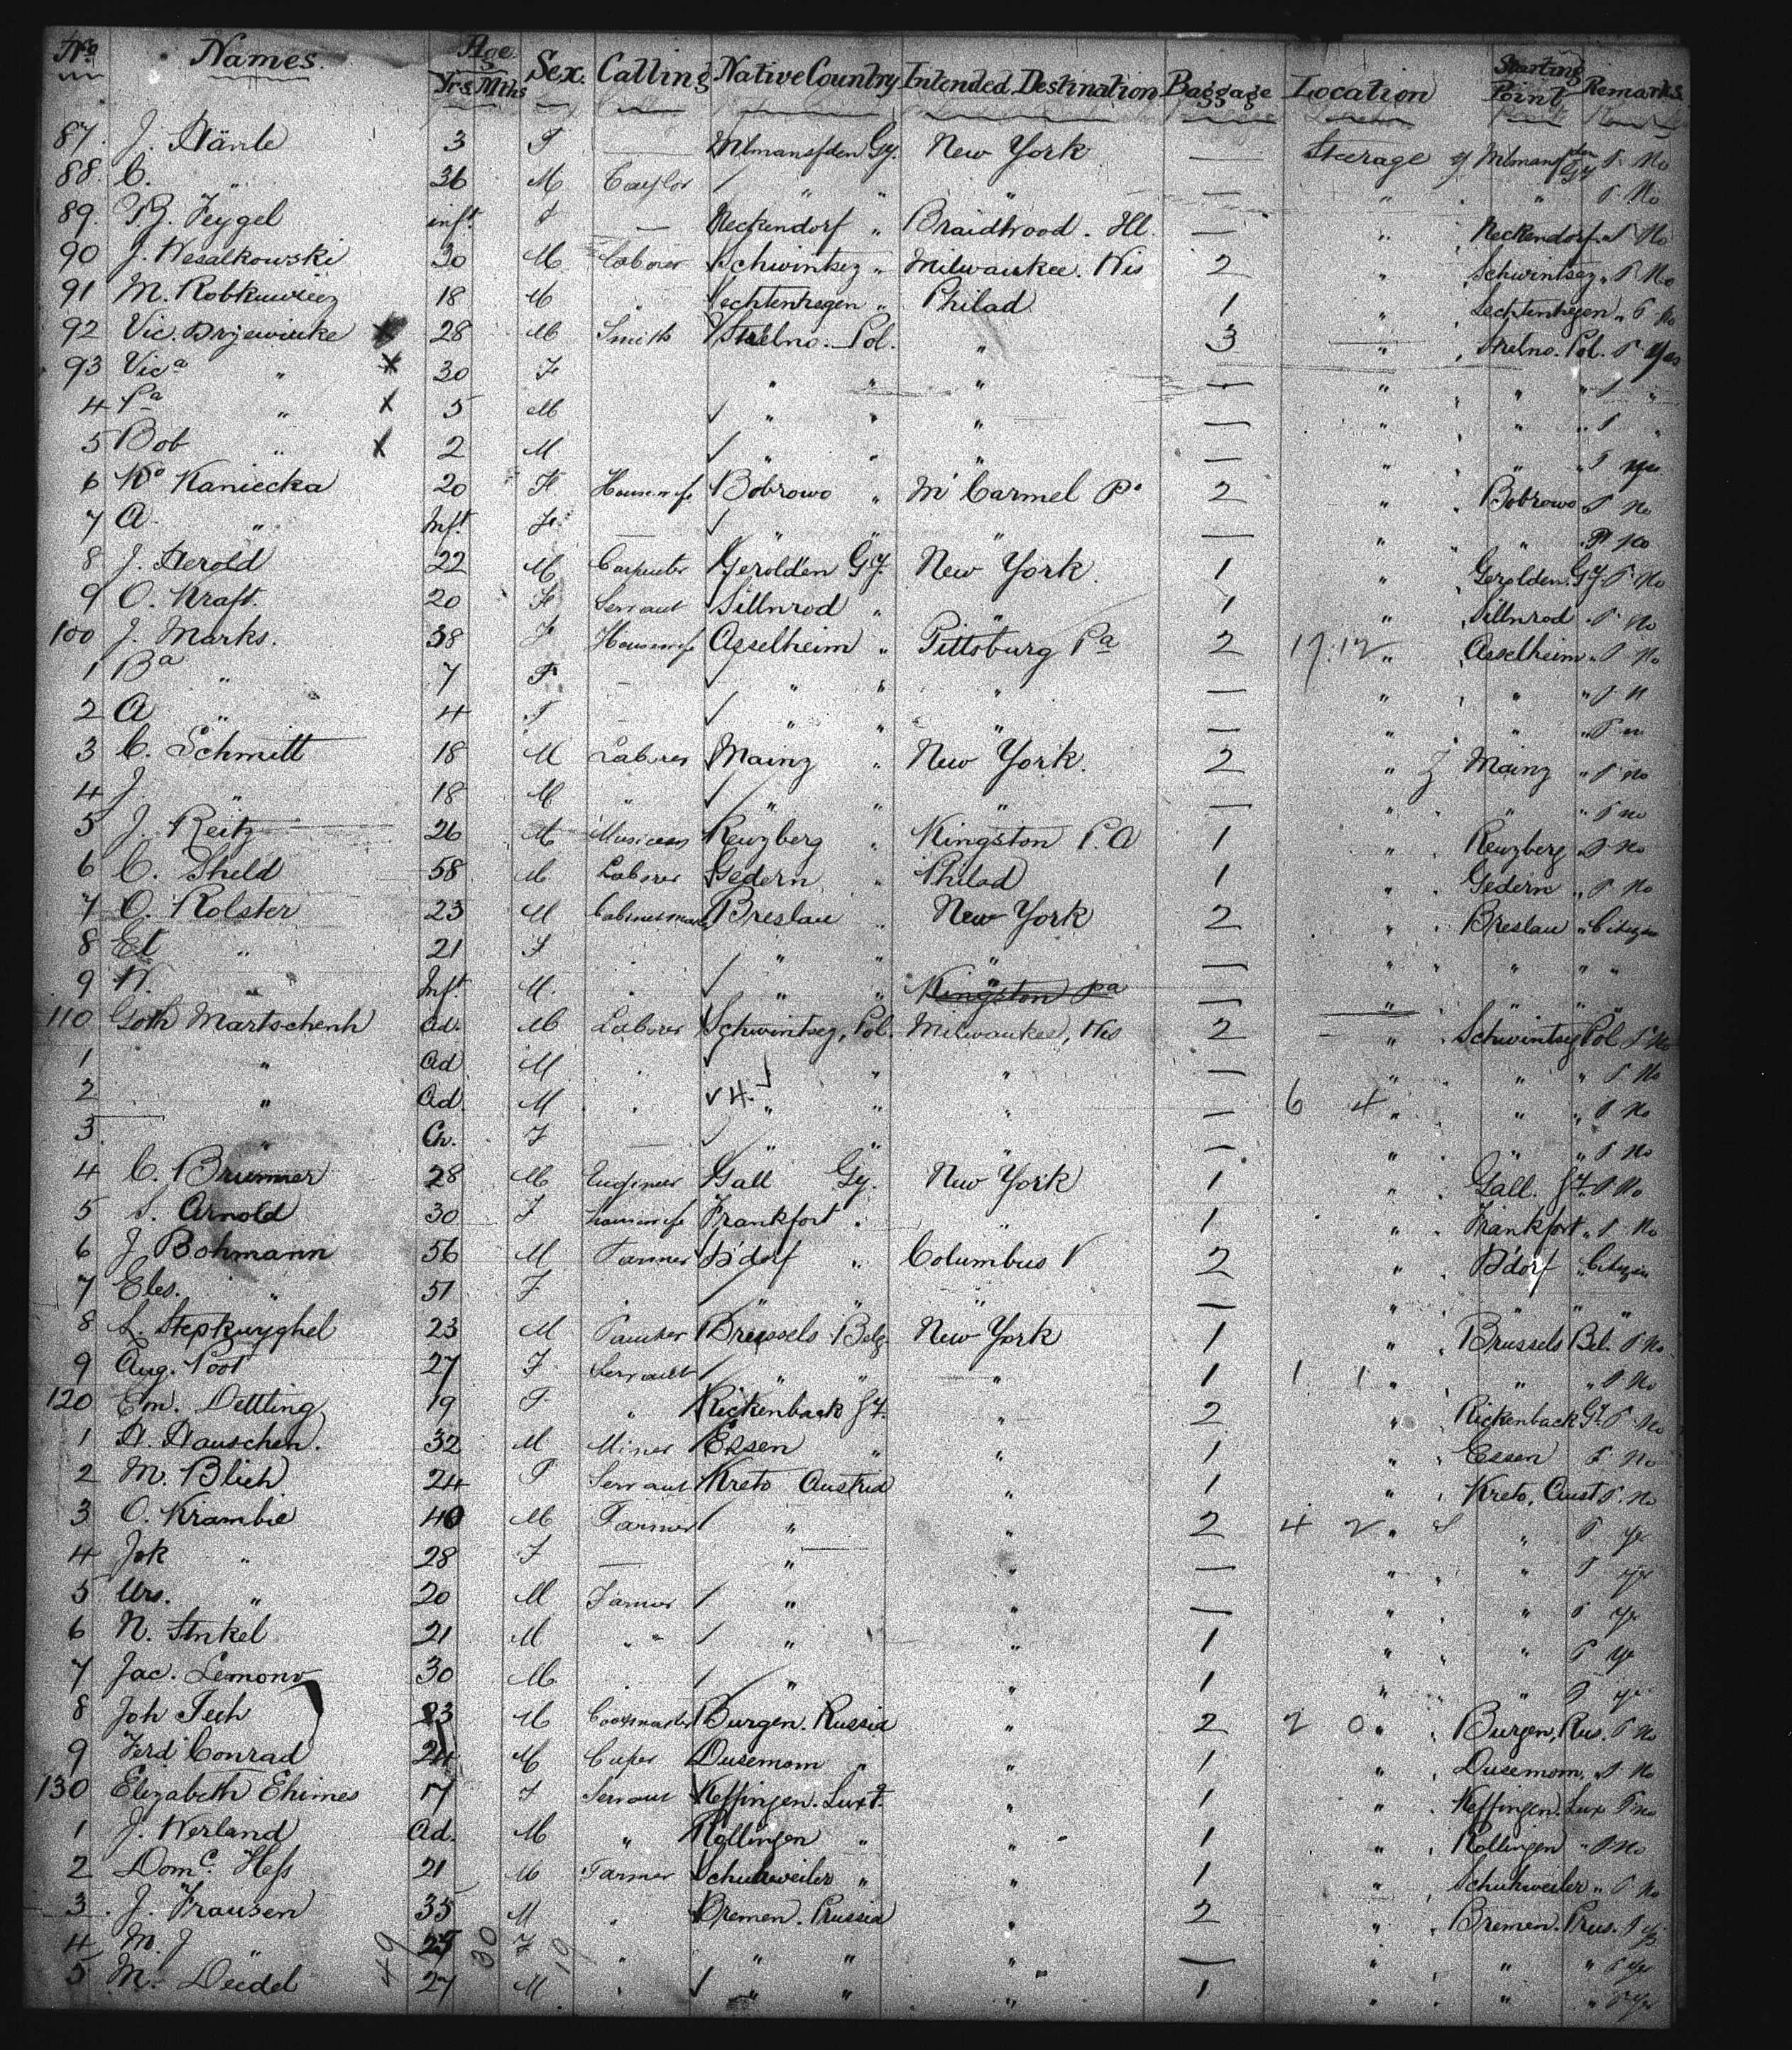 No. Names. Age Yrs. Mths Sex. Calling. Native Country Intended Destination Baggage Location Starting Point Remarks.
87. J. Hänle 3 F — New York — Steerage No
88. C. " 36 M " " — " " No
89. B. Feygel inft. F — Neckendorf " Braidwood. Ill. — " Neckendorf " No
90 J. Wesalkowski 30 M Laborer Schwintsez " Milwaukee. Wis 2 " Schwintsez " P No
91 M. 18 M " Lechtenhegen " Philad 1 " Lechtenhegen " P No
92 Vic. Drzewinke x 28 M Smith Strelno. Pol. " 3 " Strelno. Pol. P Yes
93 Vic a " x 30 F " " " — " " " P "
4 Pa " x 5 M " " " — " " " P "
5 Bob " x 2 M " " " — " " " P yes
6 Ka Kaniecka 20 F Housewife Bobrowo " Mt Carmel Pa 2 " Bobrowo P No
7 A. " Inft. F. " " " — " " " P No
8 J. Herold 22 M Carpenter Gerolden Gy. New York. 1 " Gerolden. Gy. P No
9 O. Kraft. 20 F Servant Sillnrod " " 1 " Sillnrod " P No
100 J. Marks. 38 F Housewife Asselheim " Pittsburg Pa 2 17.12 " Asselheim " P No
1 Ba " 7 F — " " " — " " " P N
2 A " 4 F " " " — " " " P n
3 C. Schmitt 18 M Laborer Mainz " New York. 2 " Mainz " P No
4 J. " 18 M " " " " — " " " P no
5 J. Reitz 26 M Musician Reuzberg " Kingston P.A 1 " Reuzberg " P No
6 C. Sheld 58 M Laborer Gedern " Philad 1 " Gedern " P No
7 O. Rolster 23 M Cabinetmaker Breslau " New York 2 " Breslau " Citizen
8 El " 21 F " " " — " " " "
9 W. " Inft. M. " " Kingston Pa — " " " "
110 Goth Martschenh Ad. M Laborer Schwintseg, Pol. Milwaukee, Wis 2 " Schwintseg Pol P No
1 " Ad M " " " — " " " P No
2 " Ad. M " 4 " " " — 6 4 " " " P No
3. " Ch. F — " " " — " " " P No
4 C. Brummer 28 M Engineer Gall Gy. New York 1 " Gall. Gy. P No
5 S. Arnold 30 F housewife Frankfort " " 1 " Frankfort " P No
6 J Bohmann 56 M Farmer D'dorf " Columbus 2 " D'dorf " Citizen
7 Eles. " 51 F " " " — " " " "
8 L. Stepkuyghel 23 M Brussels Belg. New York 1 " Brussels Bel. P No
9 Aug. Poot 27 F. Servant " " " 1 1 1 " " " P No
120 Em. Dettling 19 F " Rickenback Gy. " 2 " Rickenback Gy. P No
1 H. Hauschen. 32 M Miner Essen " " 1 " Essen P No
2 M. Blich 24 F Servant Kreto Austria " 1 " Kreto, Aust P. No
3 O. Krambie 40 M Farmer " " 2 4 2 " " P ye
4 Jok " 28 F — " " — " " P ye
5 Urs. " 20 M Farmer " " — " " P ye
6 N. Stnkel 21 M " " " " 1 " " P ye
7 Jac. Lemonv 30 M " " " 1 " " P ye
8 Joh Tech 23 M Burgen. Russia " 2 2 0 " Burgen, Rus. P No
9 Ferd Conrad 24 M Dusemom " " 1 " Dusemom, " P No
130 Elizabeth Ehimes 17 F Servant Keffingen. Luxt. " 1 " Keffingen. Lux P no
1 J. Werland Ad. M " Rollingen " " 1 " Rollingen " P No
2 Domc. Hess 21 M Farmer Schuhweiler " " 1 " Schuhweiler " P No
3. J. Frausen 35 M " Bremen. Prussia " 2 " Bremen. Prus. P ye
4 M. J " 25 F " " " " — " " " P ye
5 M. Deidel 27 M " " " " 1 " " " P ye
49 30 19